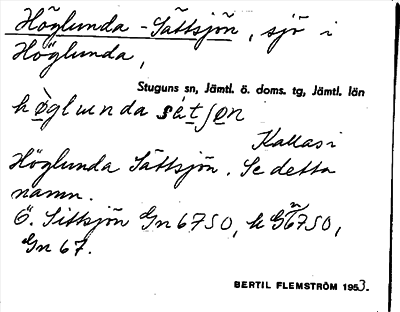 Höglunda - Sättsjön, sjö i
Höglunda,
Stuguns sn, Jämtl. ö. doms. tg, Jämtl. län
Kallas i
Höglunda Sättsjön. Se detta
namn.
Ö. Sittsjön Gn 67 SO, k Gn 67 SO,
Gn 67.
BERTIL FLEMSTRÖM 1953.